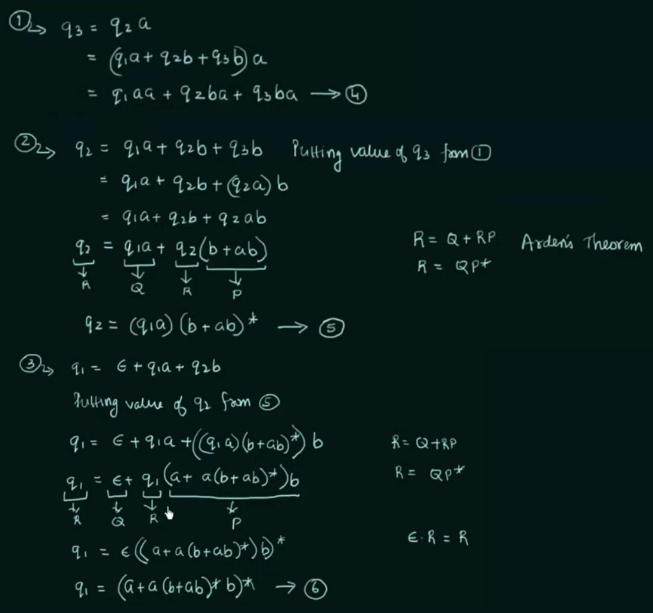 ① ↳ q3 = q2 a
= (q1a + q2b + q3b) a
= q1aa + q2ba + q3ba → ④
② ↳ q2 = q1a + q2b + q3b Putting value of q3 from ①
= q1a + q2b + (q2a) b
= q1a + q2b + q2ab
q2 = q1a + q2(b+ab) R = Q + RP Arden's Theorem
R Q R P R = QP*
q2 = (q1a) (b+ab)* → ⑤
③ ↳ q1 = ε + q1a + q2b
Putting value of q2 from ⑤
q1 = ε + q1a + ((q1a)(b+ab)*) b R = Q+RP
q1 = ε + q1 (a + a(b+ab)*)b R = QP*
R Q R P
q1 = ε ((a+a(b+ab)*)b)* ε·R = R
q1 = (a+a(b+ab)*b)* → ⑥